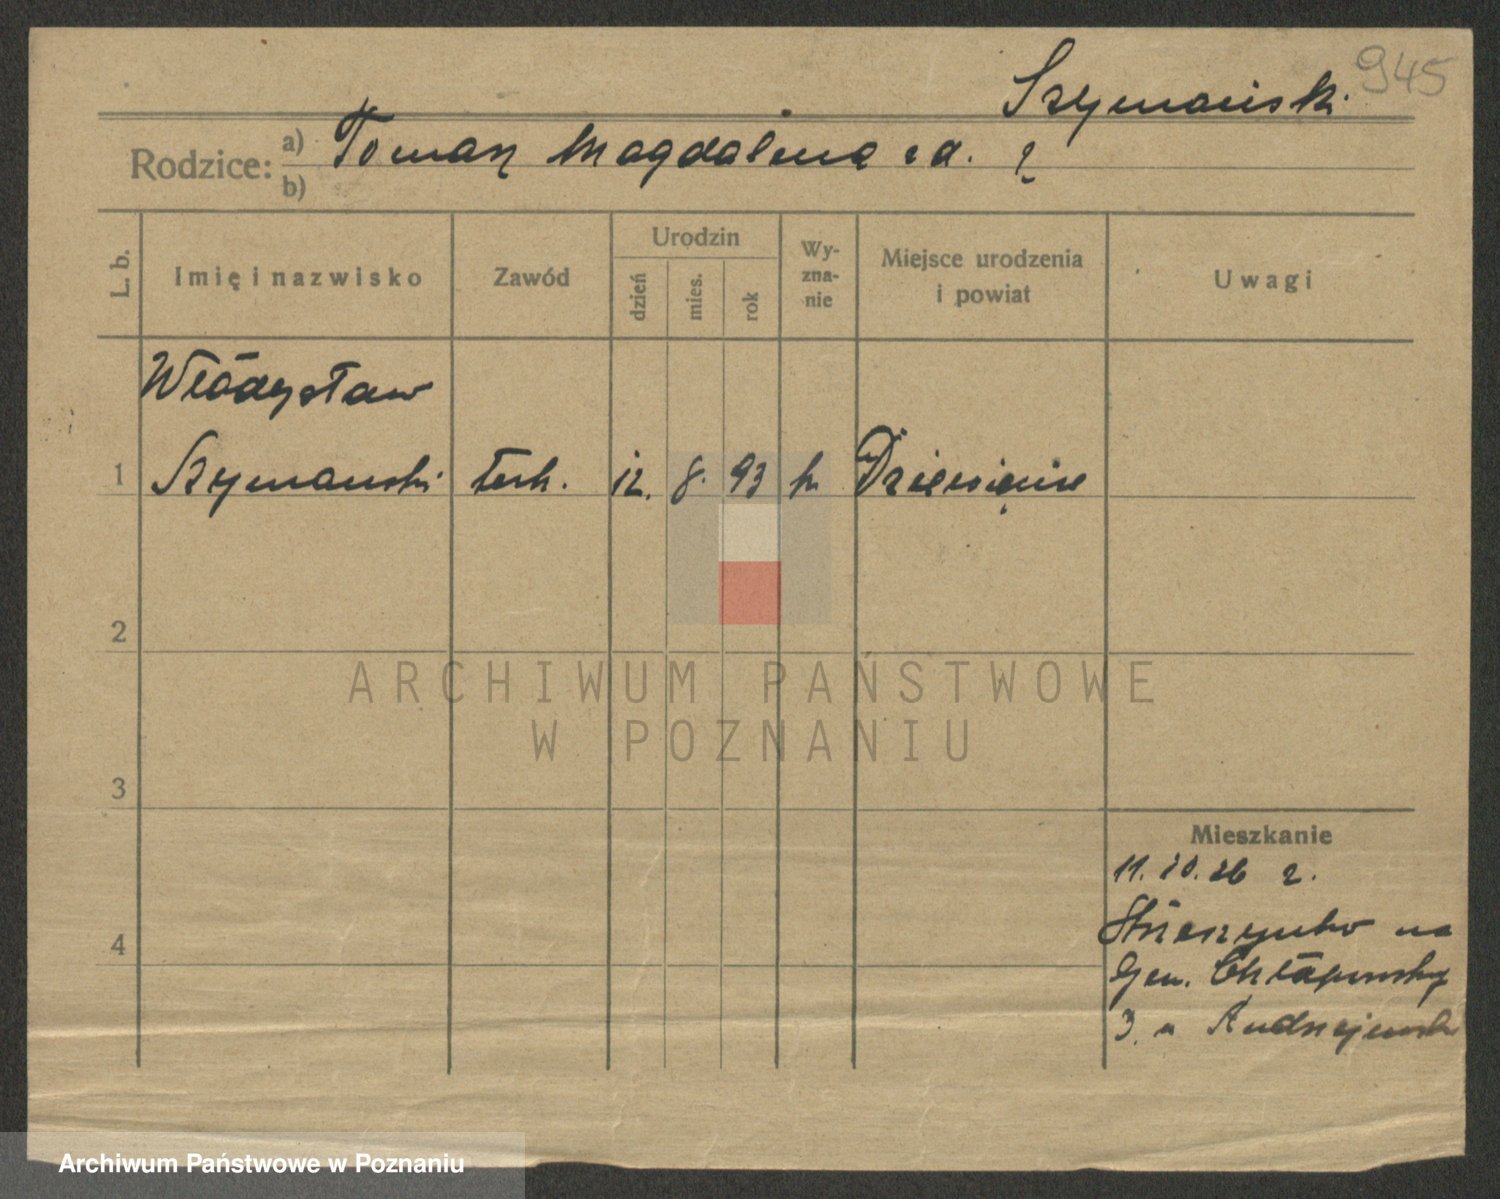 945
Szymański
Rodzice: a) Tomasz Magdalena z d. ?
b)
L. b. Imię i nazwisko Zawód Urodzin dzień mies. rok Wyznanie Miejsce urodzenia i powiat Uwagi
Władysław
1 Szymański tech. 12. 8. 93 k
2
3
Mieszkanie
11. 10. 26 r.
4
Strzeszynko na
Gen. Chłapowskiego
3. u Andrzejewski
ARCHIWUM PAŃSTWOWE
W POZNANIU
Archiwum Państwowe w Poznaniu